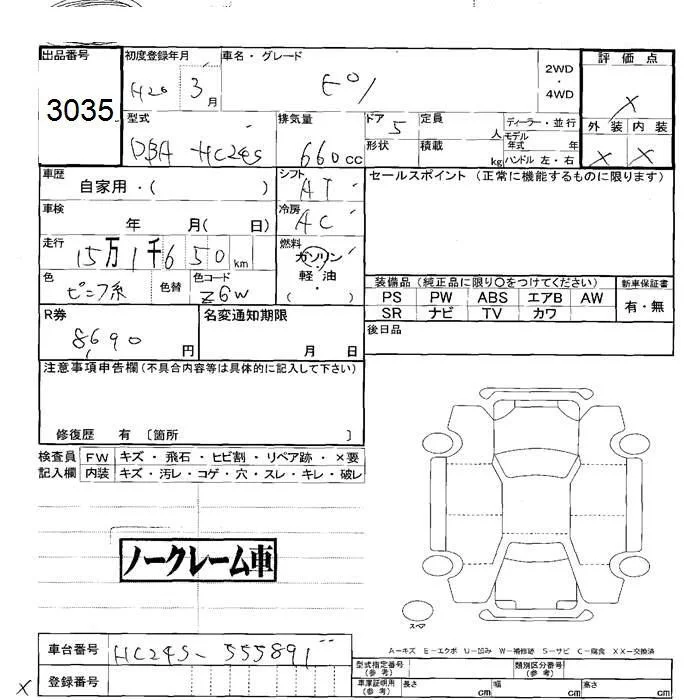 出品番号 初度登録年月 車名・グレード 2WD・4WD 評価点
3035 H26 3月 モコ X
型式 排気量 ドア 定員 人 ディーラー・並行 外装 内装
DBA-HC24S 660cc 5 形状 積載 kg モデル年式 年 ハンドル 左・右 X X
車歴 シフト セールスポイント(正常に機能するものに限ります)
自家用・( ) AT
車検 冷房
年 月( 日) AC
走行 燃料
15万1千650km ガソリン
軽油
( )
色 色替 色コード 装備品(純正品に限り〇をつけてください) 新車保証書
Z6W PS PW ABS エアB AW 有・無
SR ナビ TV カワ
R券 名変通知期限 後日品
8,690円 月 日
注意事項申告欄(不具合内容等は具体的に記入して下さい)
修復歴 有 〔箇所 〕
検査員 FW キズ・飛石・ヒビ割・リペア跡・×要
記入欄 内装 キズ・汚レ・コゲ・穴・スレ・キレ・破レ
ノークレーム車
スペア
A-キズ E-エクボ U-凹み W-補修跡 S-サビ C-腐食 XX-交換済
車台番号 HC24S-555891
型式指定番号(参考) 類別区分番号(参考)
X 登録番号
車庫証明用(参考) 長さ cm 幅 cm 高さ cm